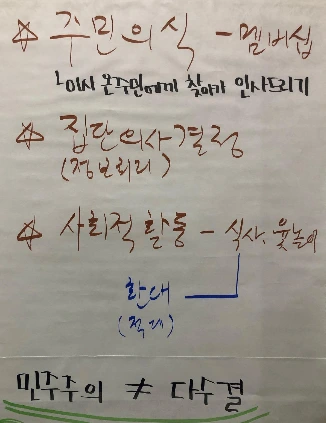 ☆ 주민의식 - 멤버십
└이사 온 주민에게 찾아가 인사드리기
☆ 집단의사결정
(정보처리)
☆ 사회적 활동 - 식사, 윷놀이
환대
(적대)
민주주의 ≠ 다수결